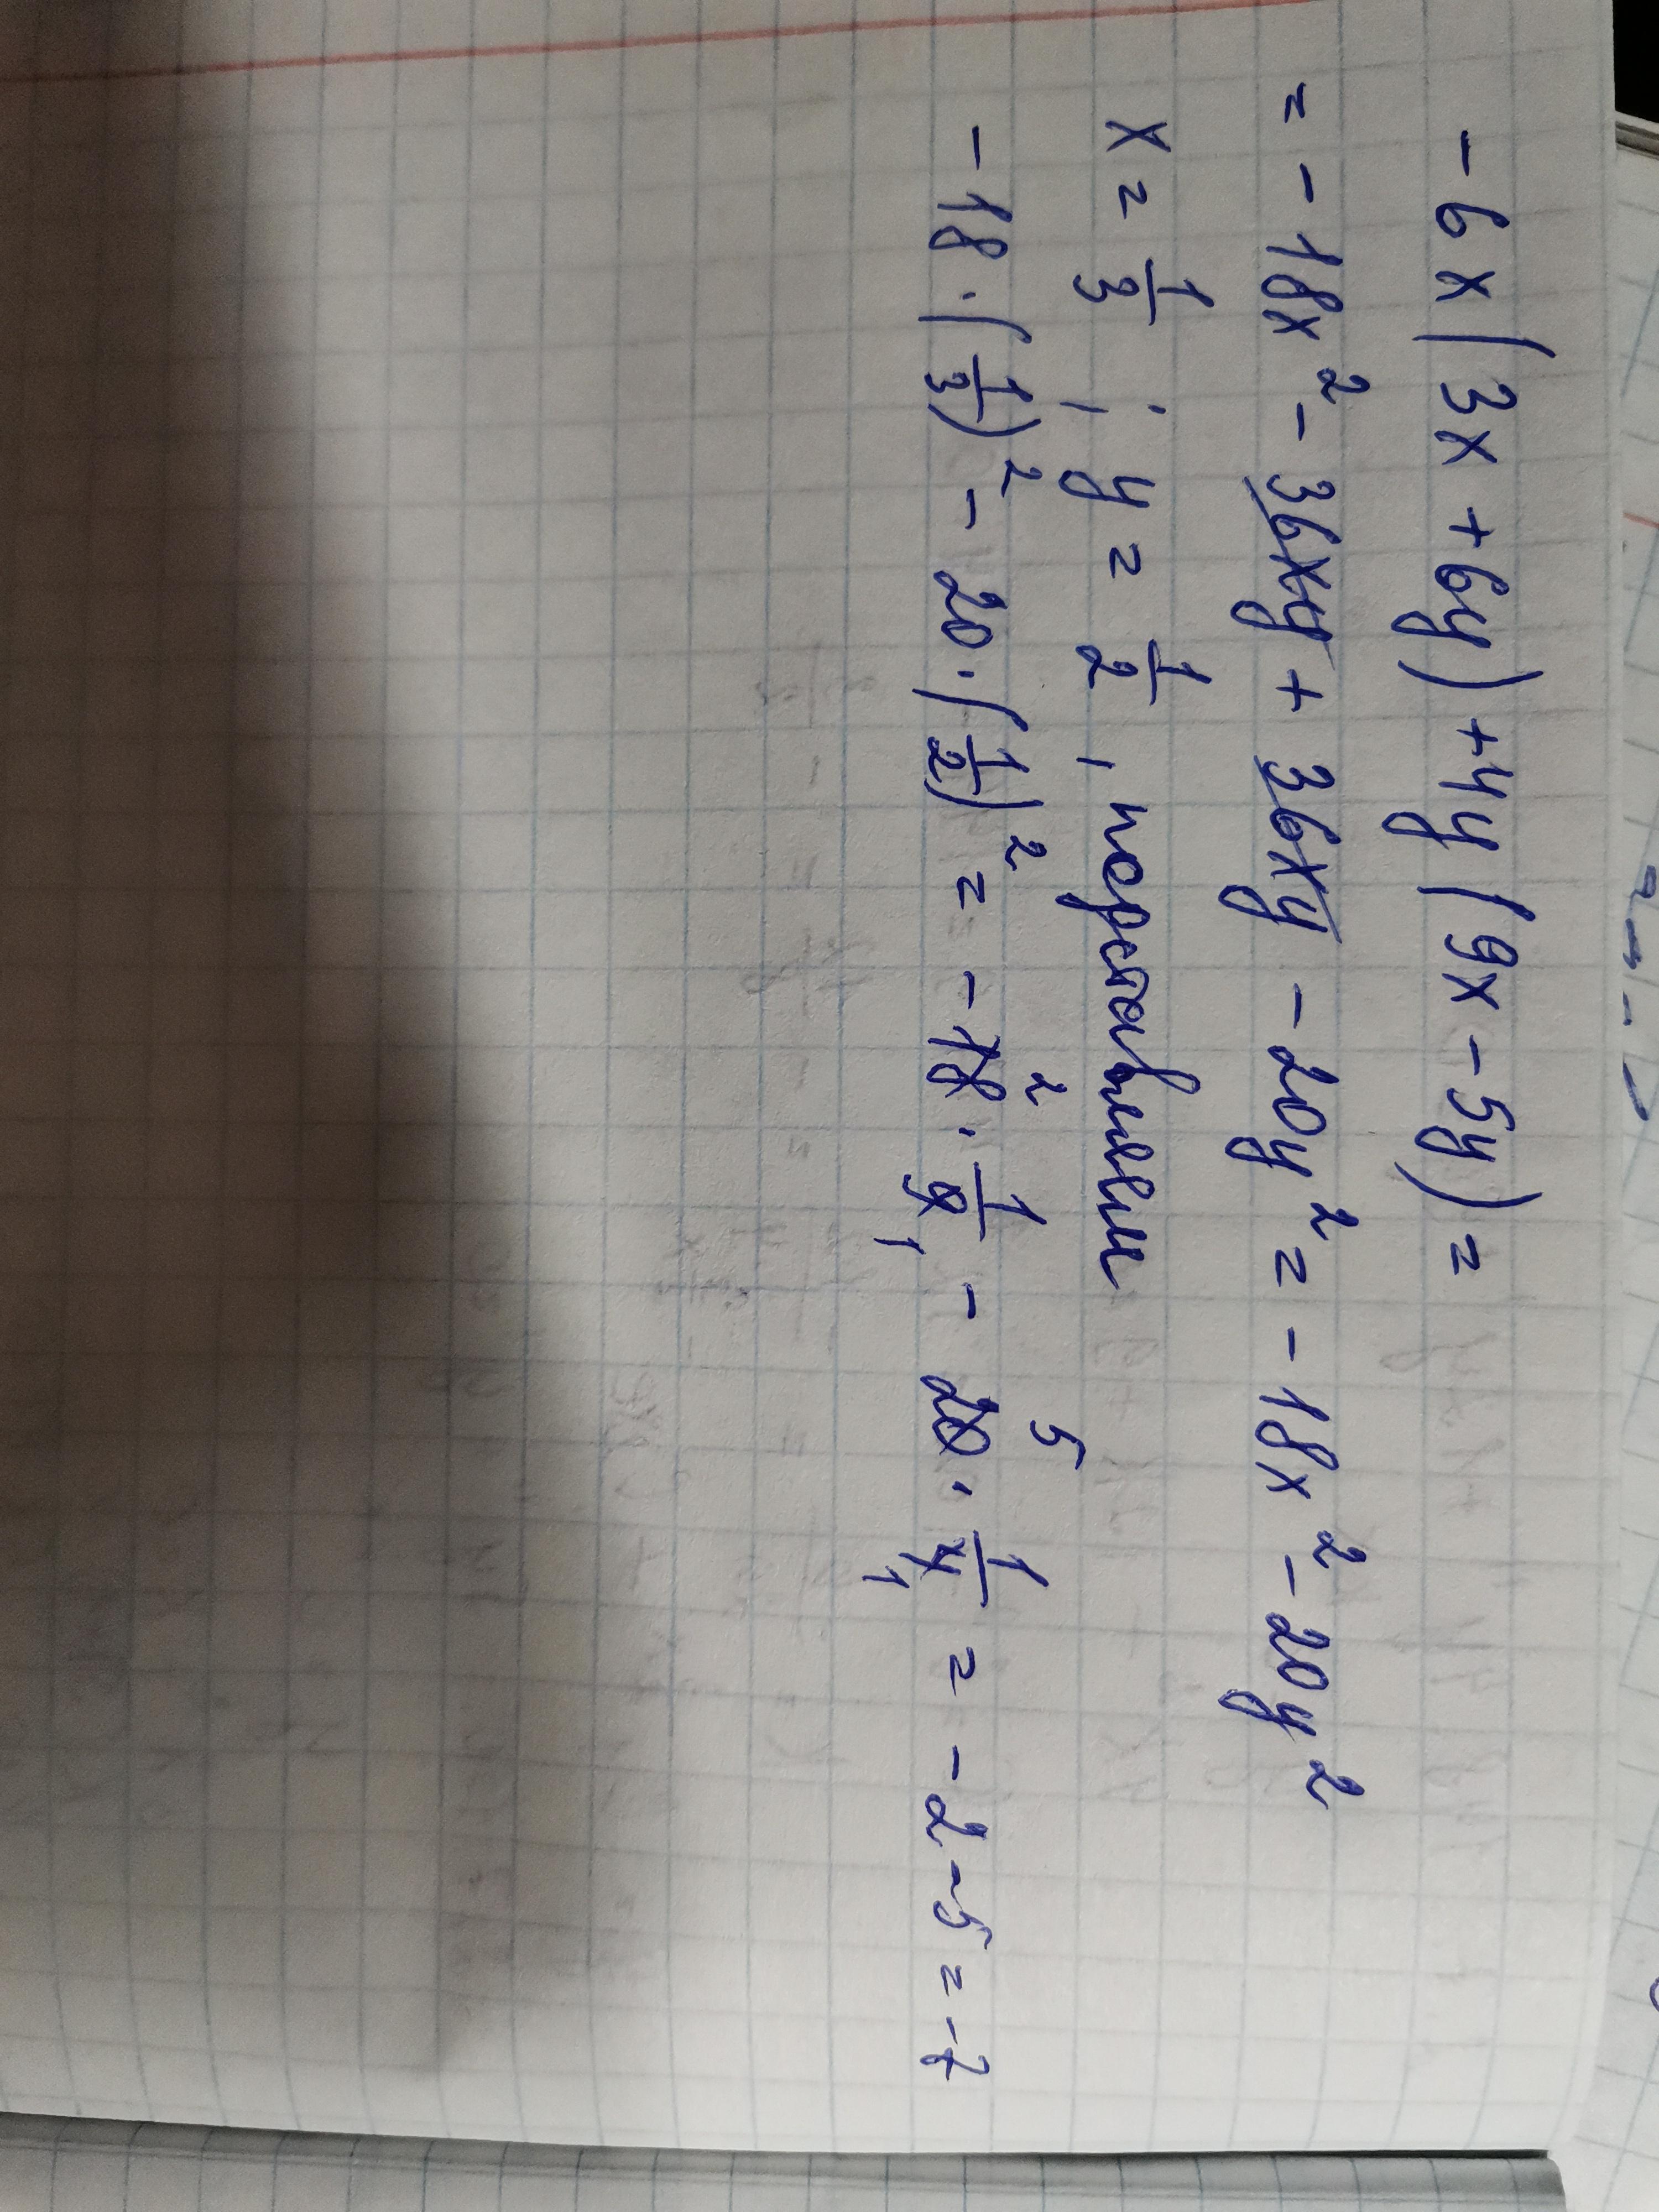 - 6x(3x + 6y) + 4y(9x - 5y) =
= - 18x² - 36xy + 36xy - 20y² = - 18x² - 20y²
x = 1/3 ; y = 1/2 , подставляем
- 18 · (1/3)² - 20 · (1/2)² = - 18 2 · 1/9 1 - 20 5 · 1/4 1 = - 2 - 5 = - 7